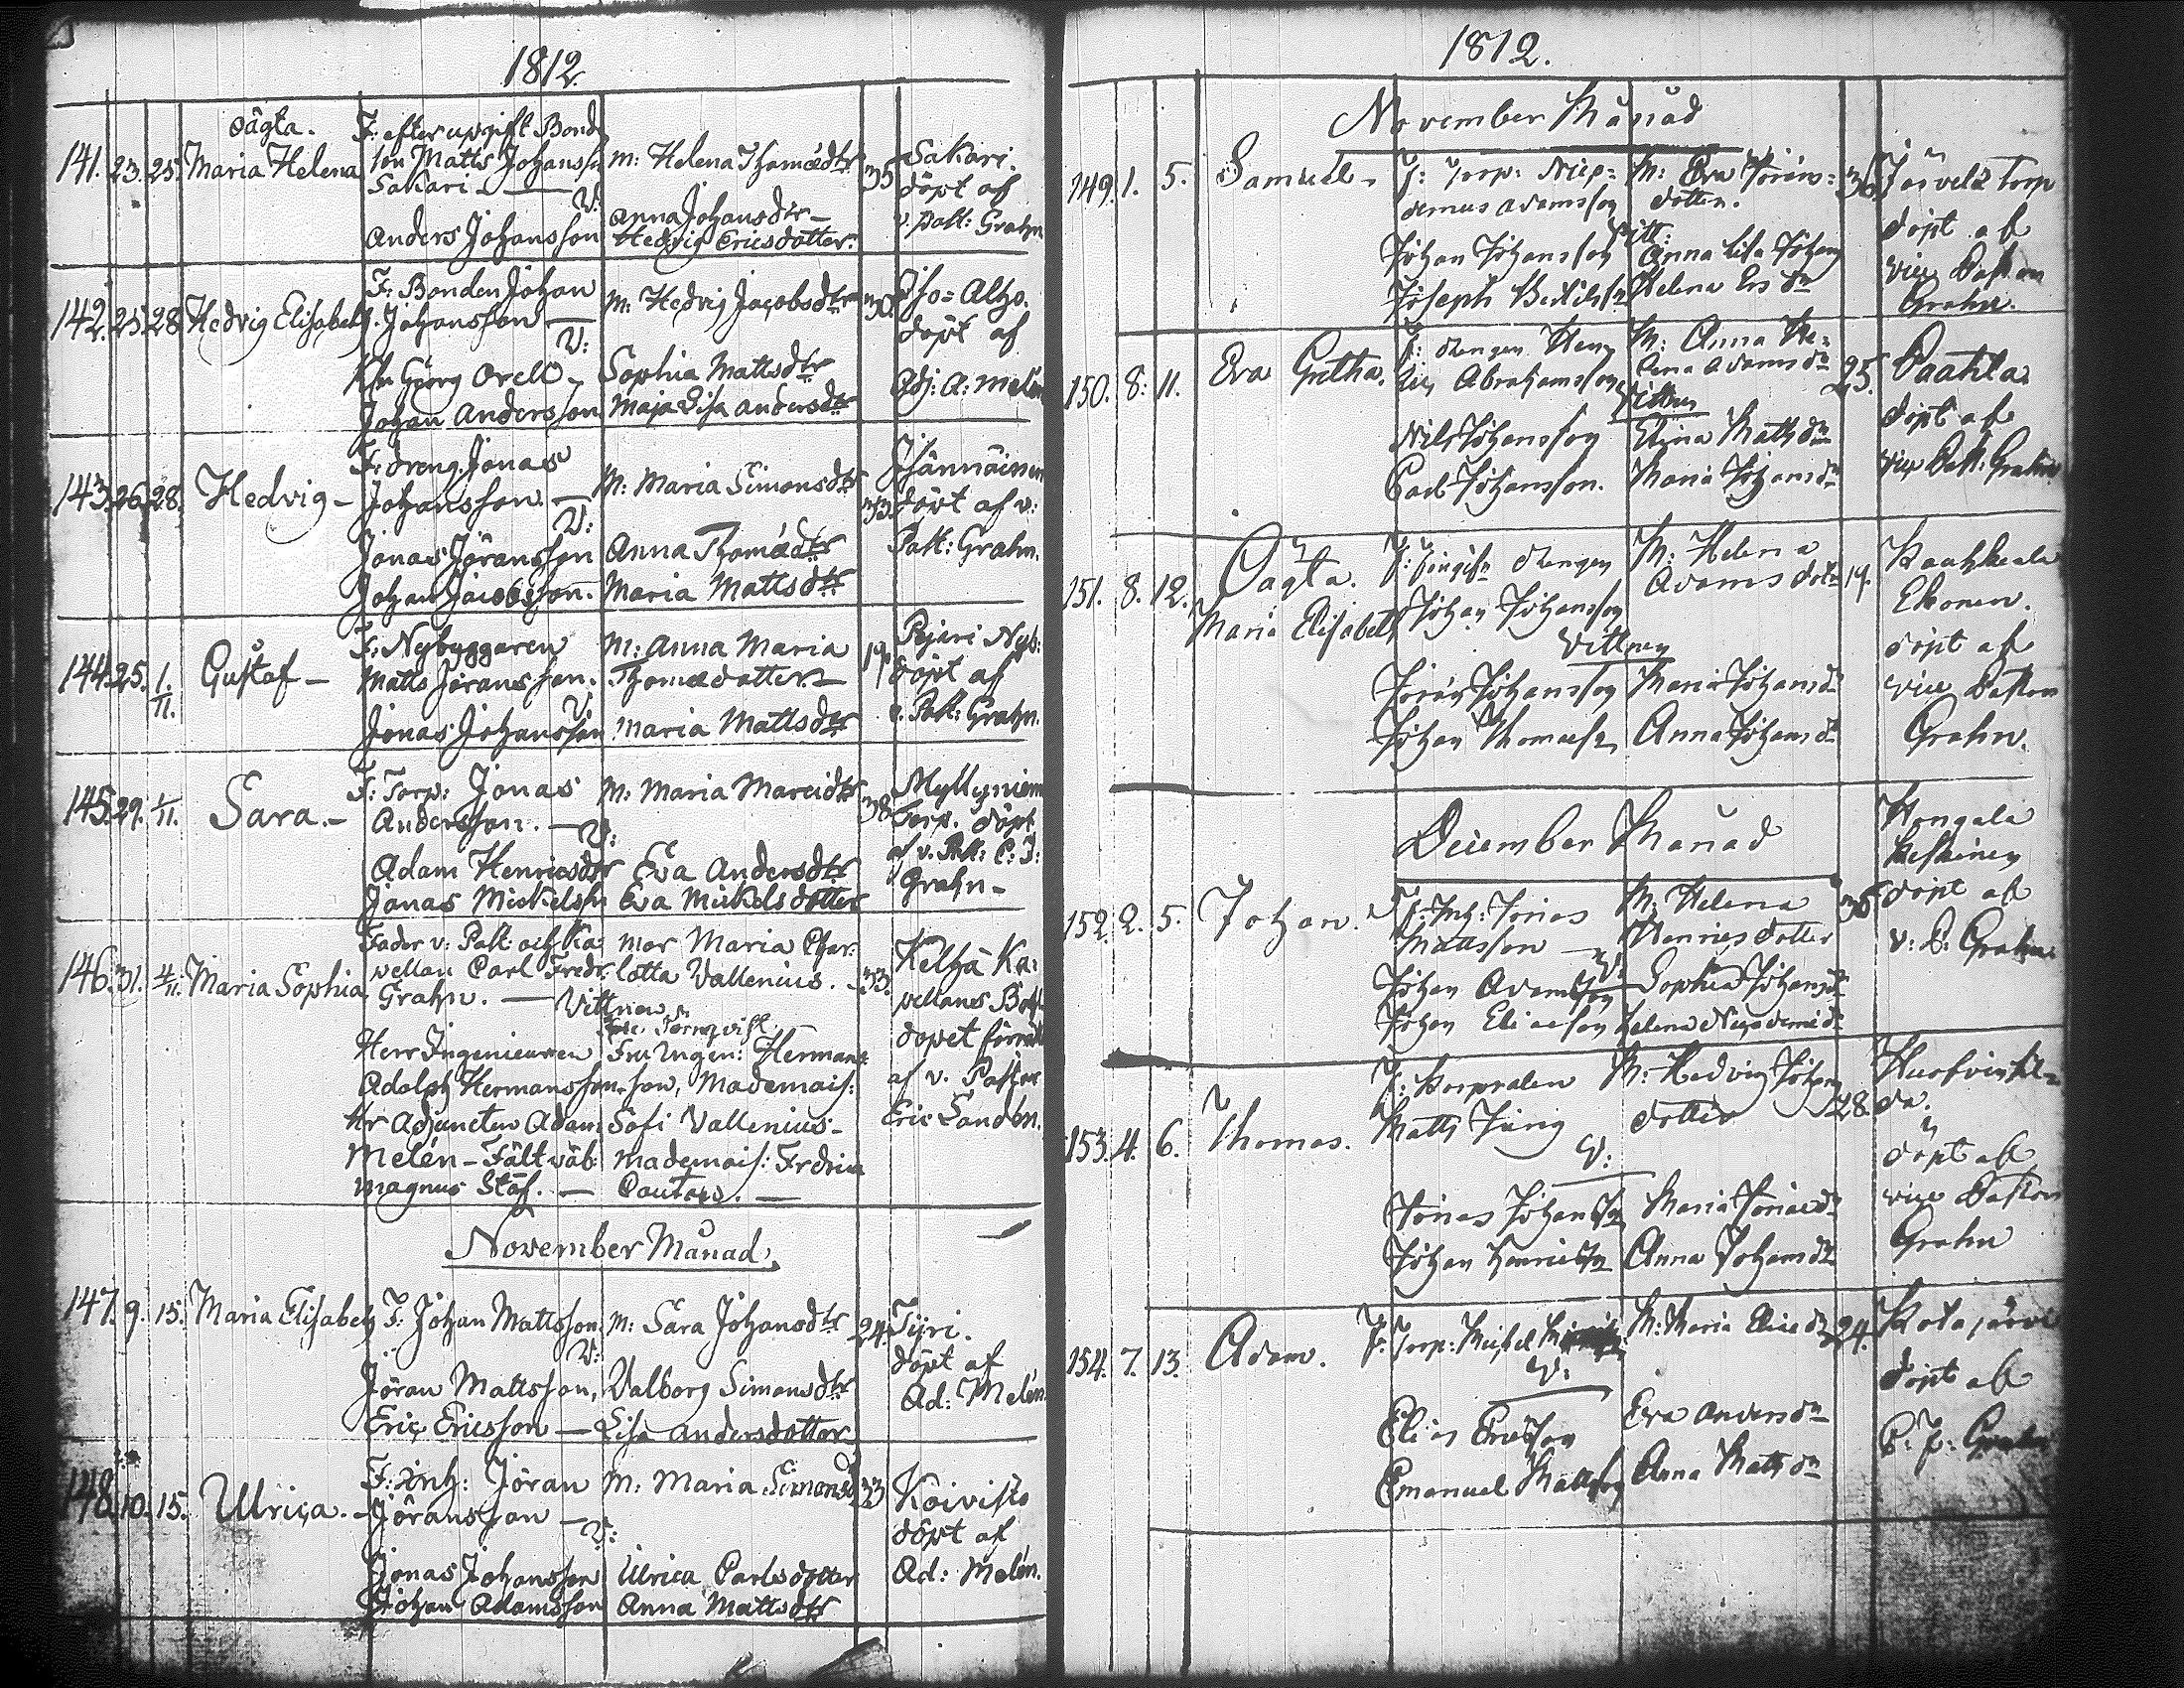 1812.
oägta.
141. 23. 25. Maria Helena
F: efter upgift Bonde
son Matts Johansson
Sakari. —
V:
Anders Johansson
M: Helena Thomædtr
Anna Johansdtr —
Hedvig Ericsdotter.
35
Sakari.
döpt af
v. Past: Grahn
142. 25. 28. Hedvig Elisabeth
F: Bonden Johan
Johansson —
V:
Georg Orell —
Johan Andersson
M: Hedvig Jacobsdtr
Sophia Mattsdtr
Maja Lisa Andersdtr
30.
Iso=Alho.
döpt af
Adj: A: Melén
143. 26. 28. Hedvig —
F: dreng. Jonas
Johansson. —
V:
Jonas Jöransson
Johan Jacobsson.
M: Maria Simonsdtr
Anna Thomædtr
Maria Mattsdtr
33.
döpt af v:
Past: Grahn.
144. 25. 1/11. Gustaf —
F: Nybyggaren
Matts Jöransson.
V:
Jonas Johansson
M: Anna Maria
Thomædotter. —
Maria Mattsdtr
19.
Pejari Nyb:
döpt af
v. Past: Grahn.
145. 29. 1/11. Sara. —
F: Torp: Jonas
Andersson. —
V:
Adam Henricsdtr
Jonas Mickelss.
M: Maria Marcidtr
Eva Andersdtr
Eva Mickelsdotter
38
Myllyniem
Torp. döpt
af v. Past: C: F:
Grahn —
146. 31. 4/11. Maria Sophia
Fader v: Past: och Ka
pellan Carl Fredr:
Grahn. — Vittnen
Herr Ingenieuren
Adolph Hermansson
Hr Adjuncten Adam
Melén — Fältväb:
Magnus Ståf. —
Mor Maria Char:
lotta Vallenius.
Törnqvist
Fru Ingen: Hermans
son, Mademois:
Sofi Vallenius —
Mademois: Fredrica
33.
Kelhä Ka:
pellans Bost
dopet förrät
af v. Pastor
Eric Sandbn.
November Månad.
147. 9. 15. Maria Elisabeth
F: Johan Mattsson
V:
Jöran Mattsson,
Eric Ericsson —
M: Sara Johansdtr
Valborg Simonsdtr
Lisa Andersdotter
24.
Tyri.
döpt af
Ad: Melén
148. 10. 15. Ulrica. —
F: Inh: Jöran
Jöransson —
V:
Jonas Johansson
Johan Adamsson
M: Maria Simonsd
Ulrica Carlsdotter
Anna Mattsdtr
33
Koivisto
döpt af
Ad: Melén.
1812.
November Månad
149. 1. 5. Samuel —
F: Torp: Nico=
demus Adamsson
Vitt:
Johan Johansson
Joseph
M: Eva Jörans=
dotter.
Anna Lisa Johans
Helena Ersdr
36.
döpt af
vice Pastom
Grahn.
150. 8. 11. Eva Gretha.
F: drengen Hen=
ric Abrahamsson
Vittnen
Nils Johansson
Carl Johansson.
M: Anna He=
lena Adamsdr
Elina Mattsdr
Maria Johansdr
25.
Paahla
döpt af
vice Past: Grahn
151. 8. 12. Oägta.
Maria Elisabeth
drengen
Johan Johansson
Vittnen
Jöran Johansson
Johan Thomass.
M: Helena
Adams dotr
Maria Johansdr
Anna Johansdr
19.
döpt af
vice Pastorn
Grahn.
December Månad
152. 2. 5. Johan.
F: Inh: Jonas
Mattsson —
V:
Johan Adamsson
Johan Eliasson
M: Helena
Henricsdotter
Sophia Johansdr
Helena Nicodemidr
36
Kongola
Keskinen
döpt af
v: P: Grahn
153. 4. 6. Thomas.
F: Korpralen
Matts Jung
V:
Jonas Johansson
Johan Henricsson
M: Hedvig Johans
dotter
Maria Jonædr
Anna Johansdr
28.
döpt af
vice Pastorn
Grahn
154. 7. 13. Adam.
F: Torp: Michel
V:
Elias Ericsson
Emanuel Mattsson
M: Maria Eliædr
Eva Andersdr
Anna Mattsdr
24.
Kotajärvi
döpt af
C: F: Grahn